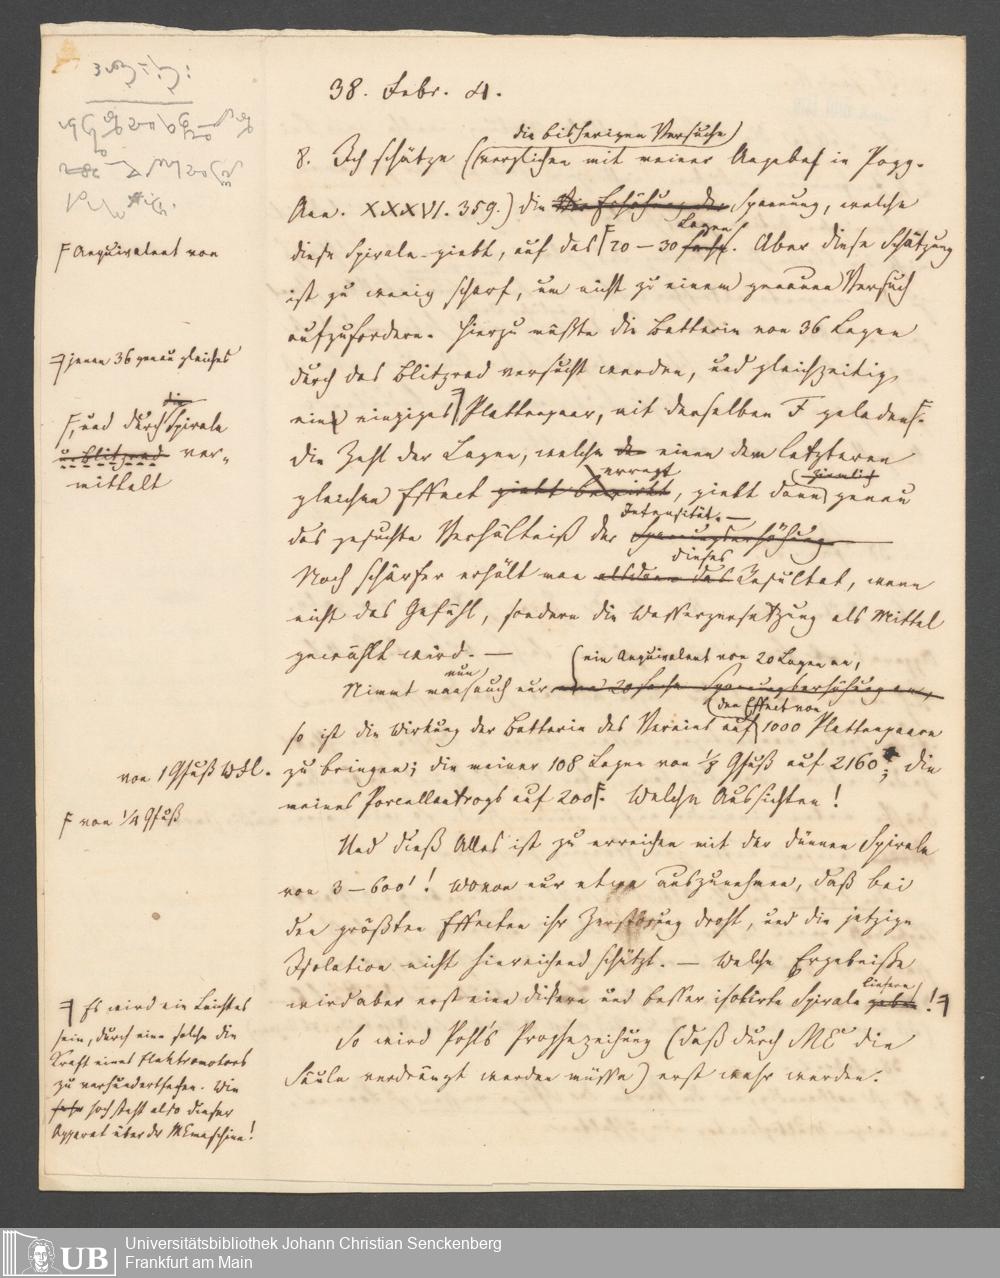 38. Febr. 4.
die bisherigen Versuche)
8. Ich schätze (verglichen mit meiner Angabe in Pogg.
Ann. XXXVI. 359.) die Spannung, welche
diese Spirale giebt, auf das 20 – 30 Lagen. Aber diese Schätzung
Aequivalent von
ist zu wenig scharf, um nicht zu einem genauen Versuch
aufzufordern. Hierzu müßte die Batterie von 36 Lagen
jenen 36 genau gleiches
durch das Blitzrad versucht werden, und gleichzeitig
ein einziges Plattenpaar, mit derselben F geladen.
, und durch die Spirale
u. Blitzrad ver-
mittelt
Die Zahl der Lagen, welche einen dem letzteren
erregt
ziemlich
gleichen Effect giebt bewirkt, giebt dann genau
Intensität. –
das gesuchte Verhältniß der Spannungserhöhung
dieses
Noch schärfer erhält man alsdann das Resultat, wenn
nicht das Gefühl, sondern die Wasserzersetzung als Mittel
gewählt wird. –
(ein Aequivalent von 20 Lagen an,
nun
Nimmt man auch nur eine 20fache Spannungserhöhung an,
den Effect von
so ist die Wirkung der Batterie des Vereins auf 1000 Plattenpaare
von 1 Qfuß Wkl.
zu bringen; die meiner 108 Lagen von 1/8 Qfuß auf 2160; die
meines Porcellantrogs auf 200. Welche Aussichten!
von 1/4 Qfuß
Und dieß Alles ist zu erreichen mit der dünnen Spirale
von 3–600'! Wovon nur etwa auszunehmen, daß bei
den größten Effecten ihr Zerstörung droht, und die jetzige
Isolation nicht hinreichend schützt. – Welche Ergebnisse
liefern
wird aber erst eine dickere und besser isolirte Spirale geben!
Es wird ein Leichtes
sein, durch eine solche die
Kraft eines Elektromotors
zu verhundertfachen. Wie
hoch steht also dieser
Apparat über der MEmaschine!
So wird Pohl's Prophezeihung (daß durch ME die
Säule verdrängt werden müsse) erst wahr werden.
Universitätsbibliothek Johann Christian Senckenberg
Frankfurt am Main
UB